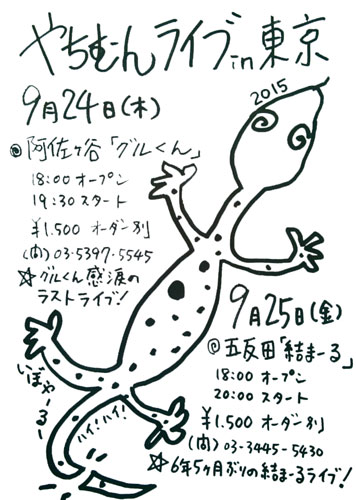 やちむんライブin東京
2015
9月24日(木)
@阿佐ヶ谷「グルくん」
18:00 オープン
19:30 スタート
¥1.500 オーダー別
(問) 03-5397-5545
☆グルくん感涙の
ラストライブ!
9月25日(金)
@五反田「結まーる」
18:00 オープン
20:00 スタート
¥1.500 オーダー別
(問) 03-3445-5430
☆6年5ヶ月ぶりの結まーるライブ!
いぼやーるー
ハイ!ハイ!